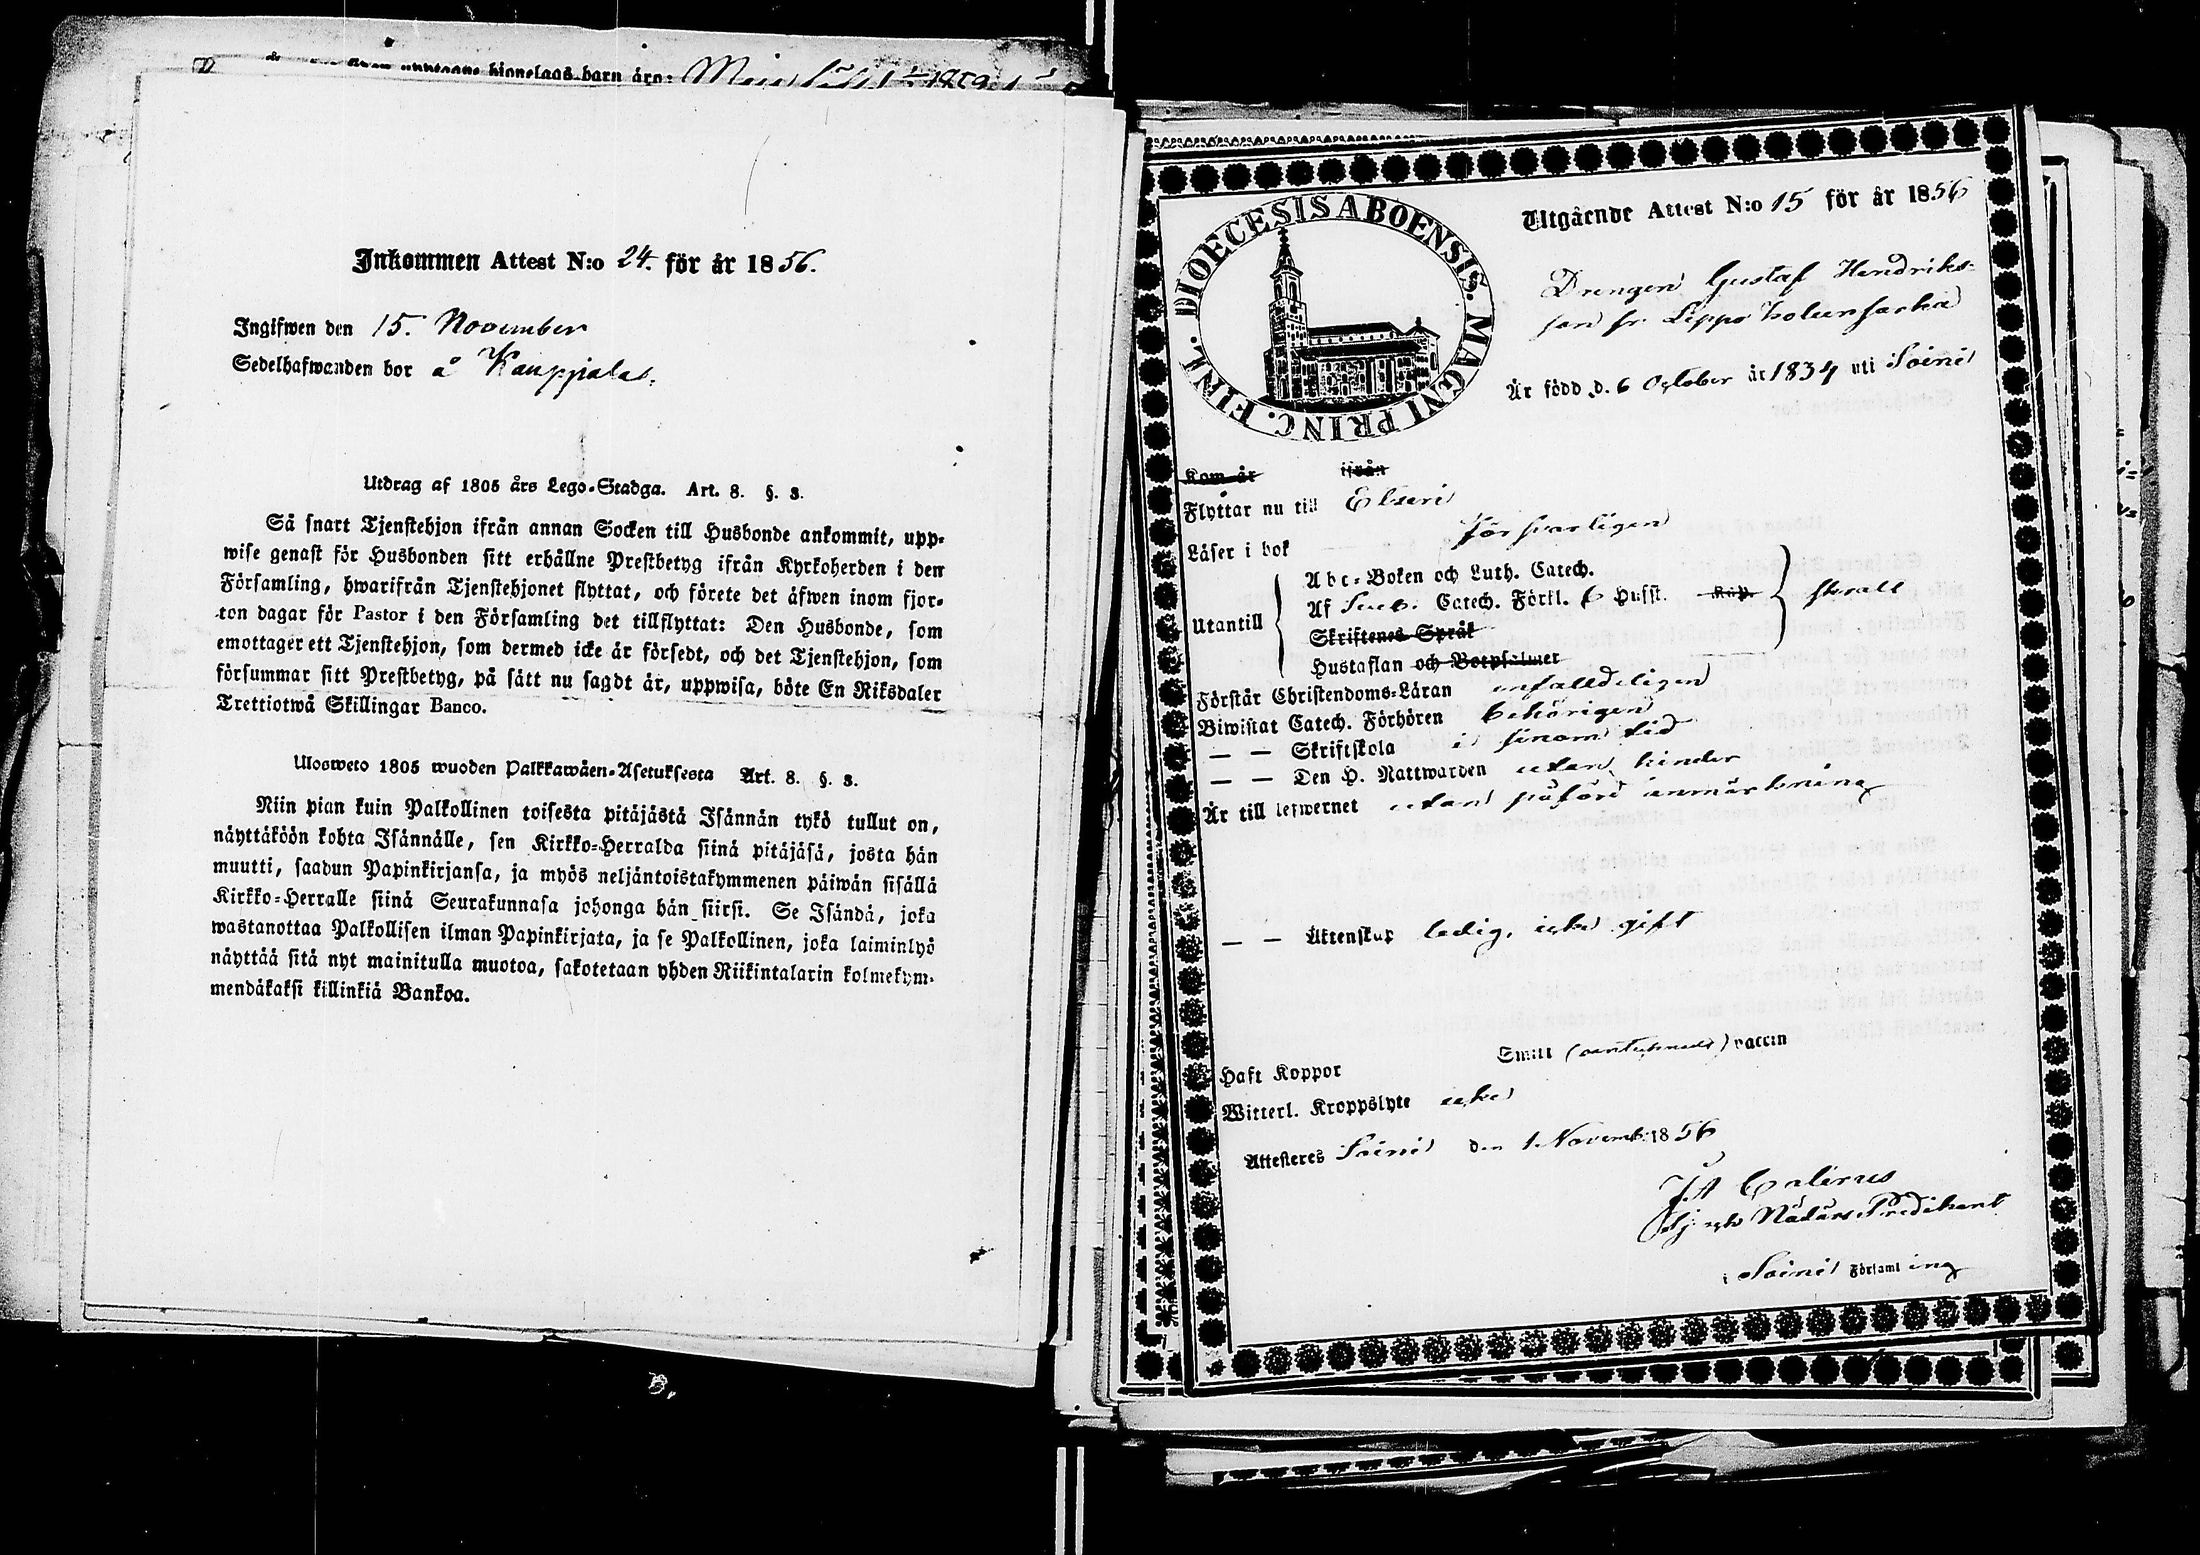 Inkommen Attest N:o 24. för år 1856.
Ingifwen den 15. November
Sedelhafwanden bor å Kauppialas.
Utdrag af 1805 års Lego-Stadga. Art. 8. §. 3.
Så snart Tjenstehjon ifrån annan Socken till Husbonde ankommit, upp-
wise genast för Husbonden sitt erhållne Prestbetyg ifrån Kyrkoherden i den
Församling, hwarifrån Tjenstehjonet flyttat, och förete det äfwen inom fjor-
ton dagar för Pastor i den Församling det tillflyttat: Den Husbonde, som
emottager ett Tjenstehjon, som dermed icke är försedt, och det Tjenstehjon, som
försummar sitt Prestbetyg, på sätt nu sagdt är, uppwisa, böte En Riksdaler
Trettiotwå Skillingar Banco.
Ulosweto 1805 wuoden Palkkawäen-Asetuksesta Art. 8. §. 3.
Niin pian kuin Palkollinen toisesta pitäjästä Isännän tykö tullut on,
näyttäköön kohta Isännälle, sen Kirkko-Herralda siinä pitäjäsä, josta hän
muutti, saadun Papinkirjansa, ja myös neljäntoistakymmenen päiwän sisällä
Kirkko-Herralle siinä Seurakunnasa johonga hän siirsi. Se Isändä, joka
wastanottaa Palkollisen ilman Papinkirjata, ja se Palkollinen, joka laiminlyö
näyttää sitä nyt mainitulla muotoa, sakotetaan yhden Riikintalarin kolmekym-
mendäkaksi killinkiä Bankoa.
DIOECESIS ABOENSIS. MAGNI PRINC. FINL.
Utgående Attest N:o 15 för år 1856
Drengen Gustaf Hendriks-
son fr. Leppo
Är född d. 6 October år 1834 uti Soini
Kom år ifrån
Flyttar nu till Etseri
Läser i bok försvarligen
Utantill
Abc-Boken och Luth. Catech.
Af Catech. Förkl. 6 Hufst. Kap. svall
Skriftenes Språk
Hustaflan och Botpsalmer
Förstår Christendoms-Läran enfalldeligen
Biwistat Catech. Förhören behörigen
— — Skriftskola i sinom tid
— — Den H. Nattwarden utan hinder
Är till lefwernet utan påförd anmärkning
— — Äktenskap ledig, icke gift
Haft Koppor
Smitt vaccin
Witterl. Kroppslyte icke
Attesteres Soini den 1 Novemb. 1856
J. A Calenius
Nådårs Predikant
i Soini Församling